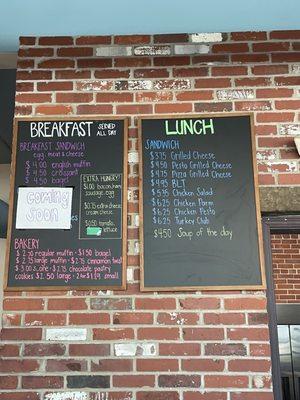 BREAKFAST SERVED ALL DAY
BREAKFAST SANDWICH
egg, meat & cheese
$4.00 english muffin
$4.50 croissant
$4.50 bagel
COMING
SOON
EXTRA HUNGERY?
$1.00 bacon, ham,
sausage, egg
$0.75 extra cheese,
cream cheese
$0.50 tomato,
BAKERY
$2.50 regular muffin $1.50 bagel
$2.75 large muffin $2.75 cinnamon twist
$3.00 scone $2.75 chocolate pastry
COOKIES $2.50 large 2/$1.00 small
LUNCH
SANDWICH
$3.75 Grilled Cheese
$4.50 Pesto Grilled Cheese
$4.75 Pizza Grilled Cheese
$4.95 BLT
$5.25 Chicken Salad
$6.25 Chicken Parm
$6.25 Chicken Pesto
$6.25 Turkey Club
$4.50 Soup of the day